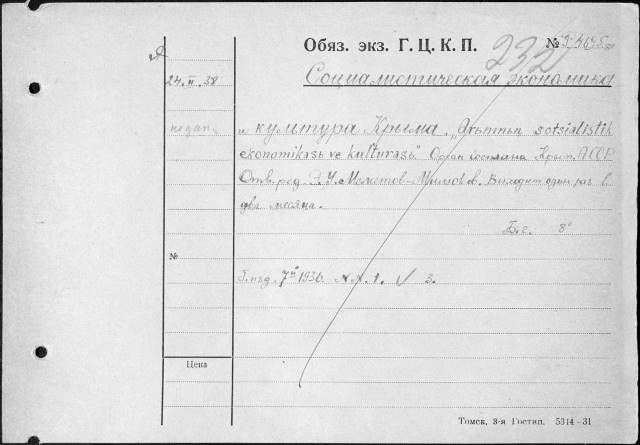 Обяз. экз. Г. Ц. К. П. №
232
Я
24.II.38
Социалистическая экономика
и культура Крыма. „Qrьmnьn sotsialistik
ekonomikasь ve kulturasь". Орган Госплана Крым. АССР
Отв. ред. У. Меметов. Выходит один раз в
два месяца.
Б. г. 8°
№
Г. изд. 7й 1936. №№ 1. √ 3.
Цена
Томск, 3-я Гостип. 5314-31